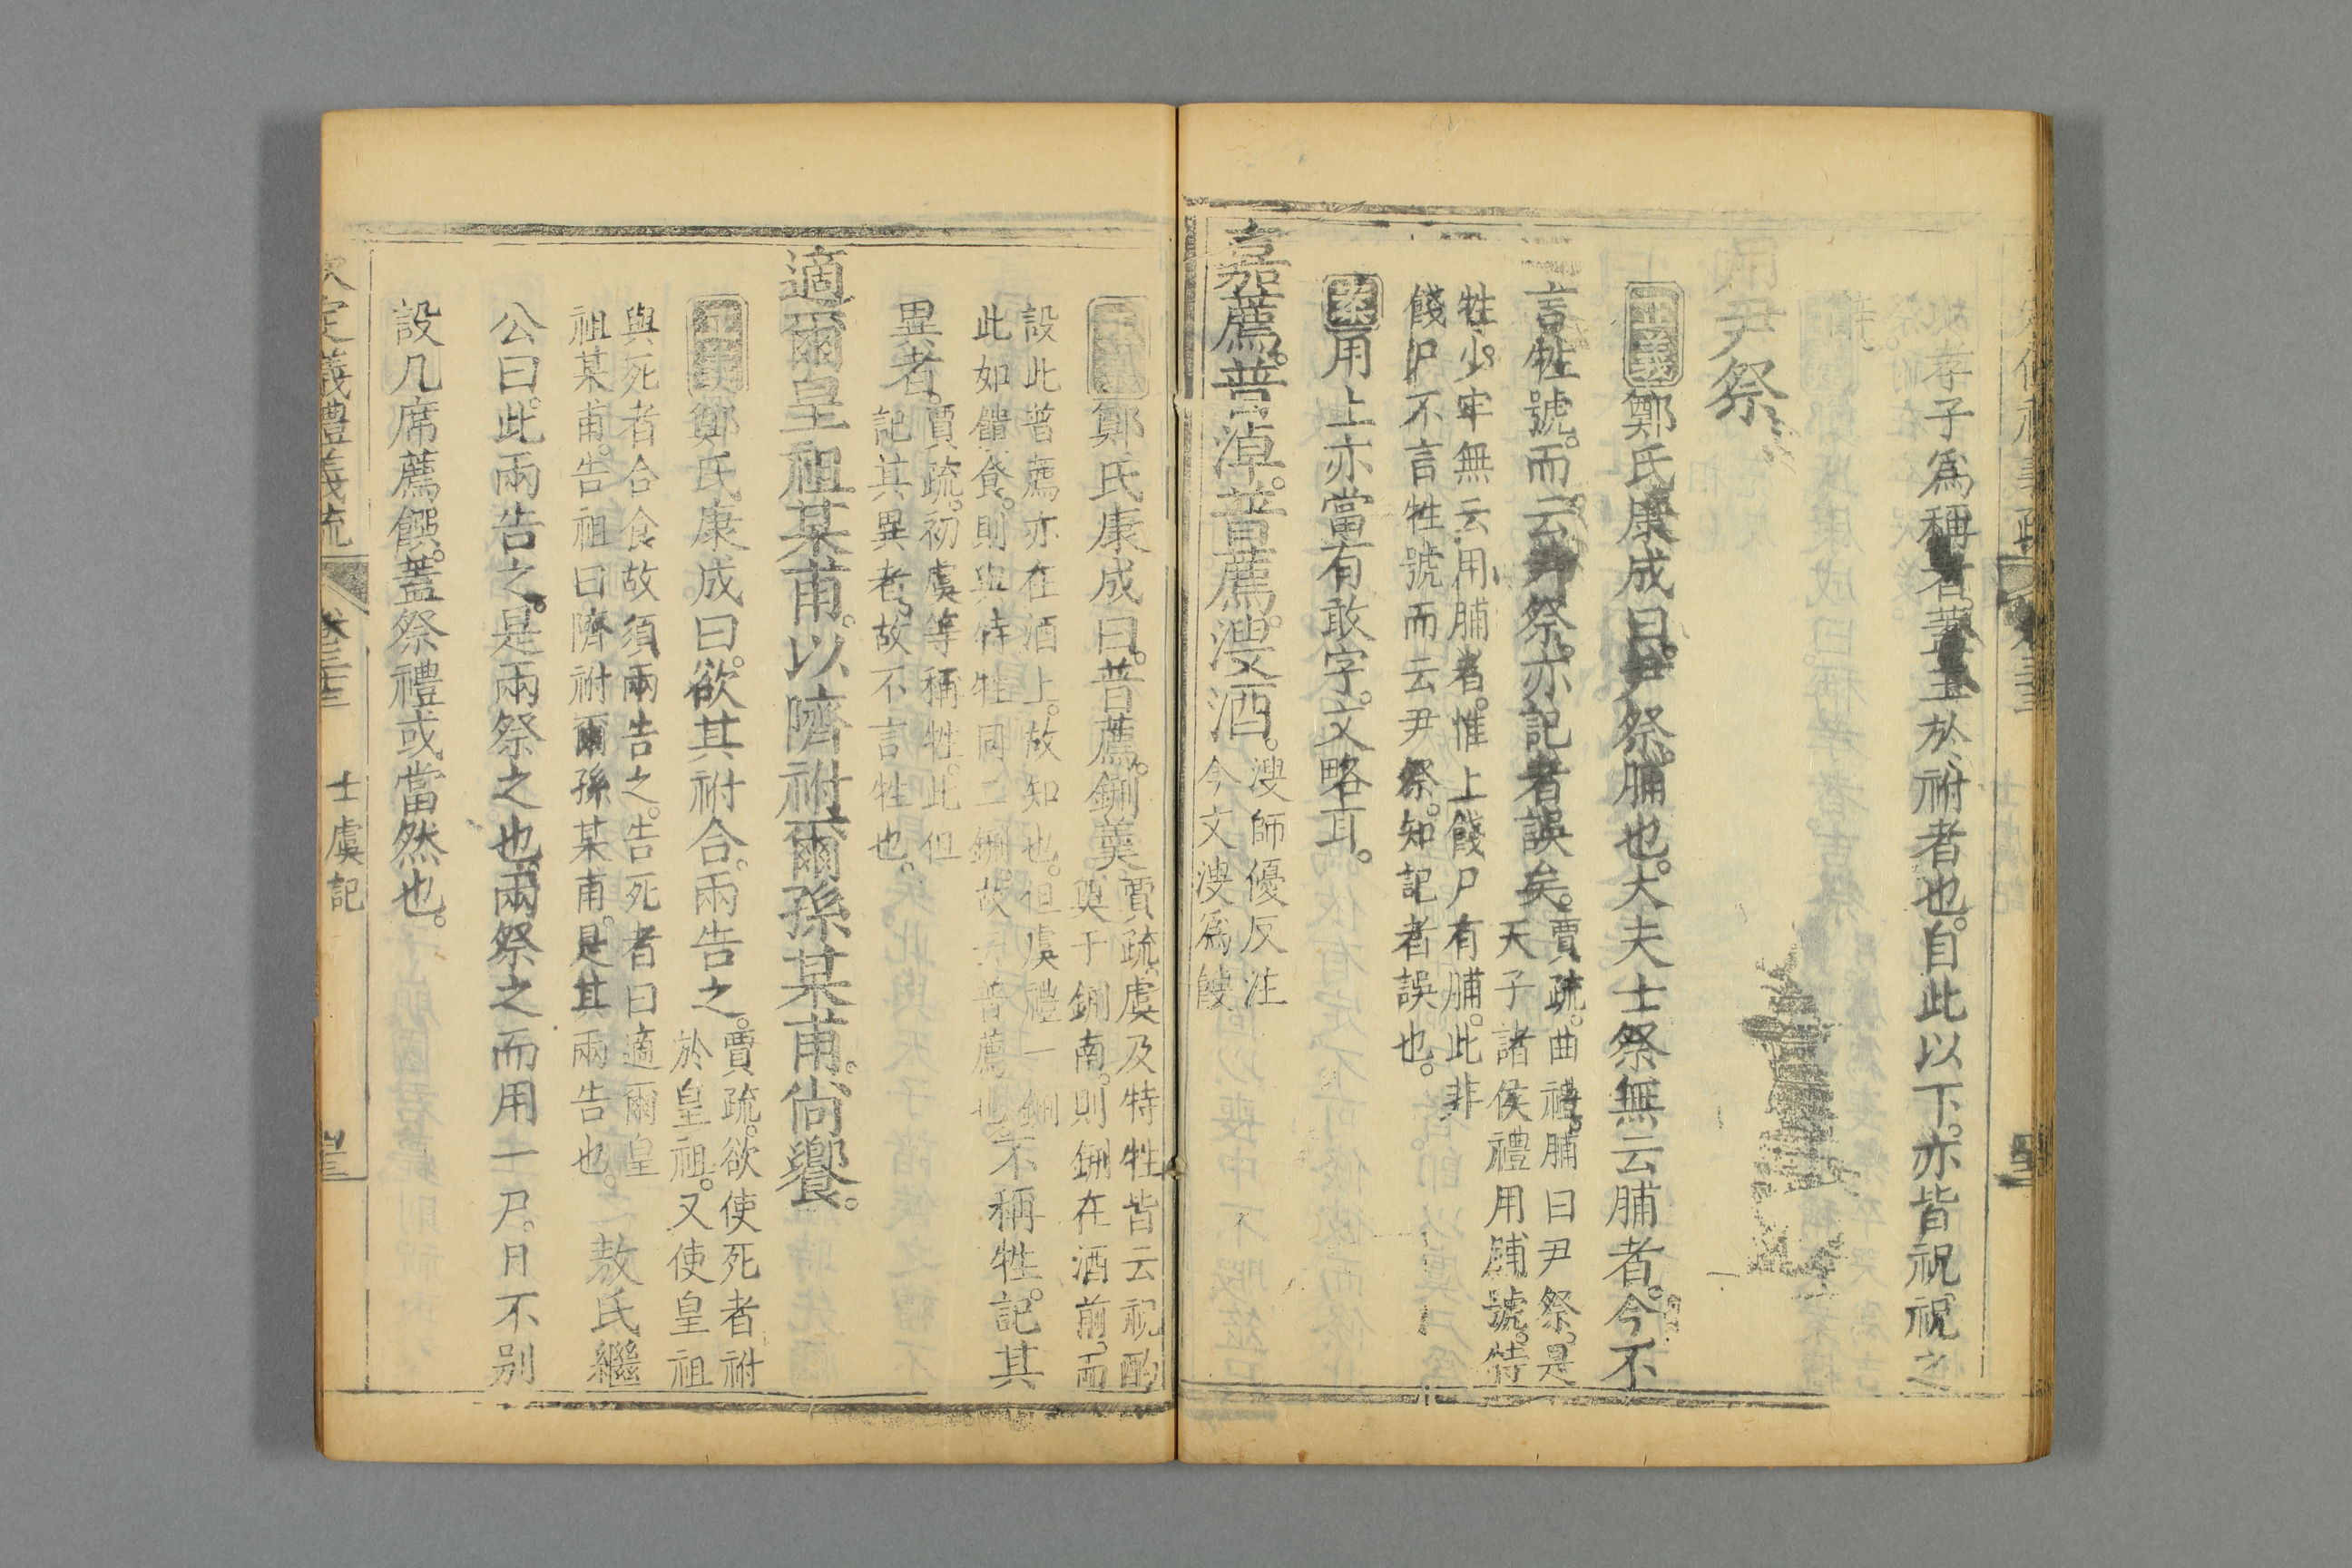 孝子爲稱者。蓋主於祔者也。自此以下。亦皆祝祝之
用尹祭
正義鄭氏康成曰。尹祭。脯也。大夫士祭無云脯者。今不
言牲號。而云尹祭。亦記者誤矣。
賈疏。曲禮。脯曰尹祭。是
天子諸侯禮用脯號。特
牲少牢無云用脯者。惟上餞尸有脯。此非
餞尸。不言牲號而云尹祭。知記者誤也。
案用上亦當有敢字。文略耳。
嘉薦。普淖。普薦。溲酒。
溲師優反注
今文溲爲餿
正義鄭氏康成曰。普薦。鉶羹
賈疏。虞及特牲皆云祝酌
奠于鉶南。則鉶在酒前。而
設此普薦亦在酒上。故知也。但虞禮一鉶
此如饋食。則與特牲同二鉶。故云普薦也。
不稱牲。記其
異者。
賈疏。初虞等稱牲。此但
記其異者。故不言牲也。
適爾皇祖某甫。以隮祔爾孫某甫。尙饗。
正義鄭氏康成曰。欲其祔合。兩告之。
賈疏。欲使死者祔
於皇祖。又使皇祖
與死者合食。故須兩告之。告死者曰適爾皇
祖某甫。告祖曰隮祔爾孫某甫。是其兩告也。
敖氏繼
公曰。此兩告之。是兩祭之也。兩祭之而用一尸。曰不别
設几席薦饌。蓋祭禮或當然也。
欽定儀禮義疏 卷三十三 士虞記